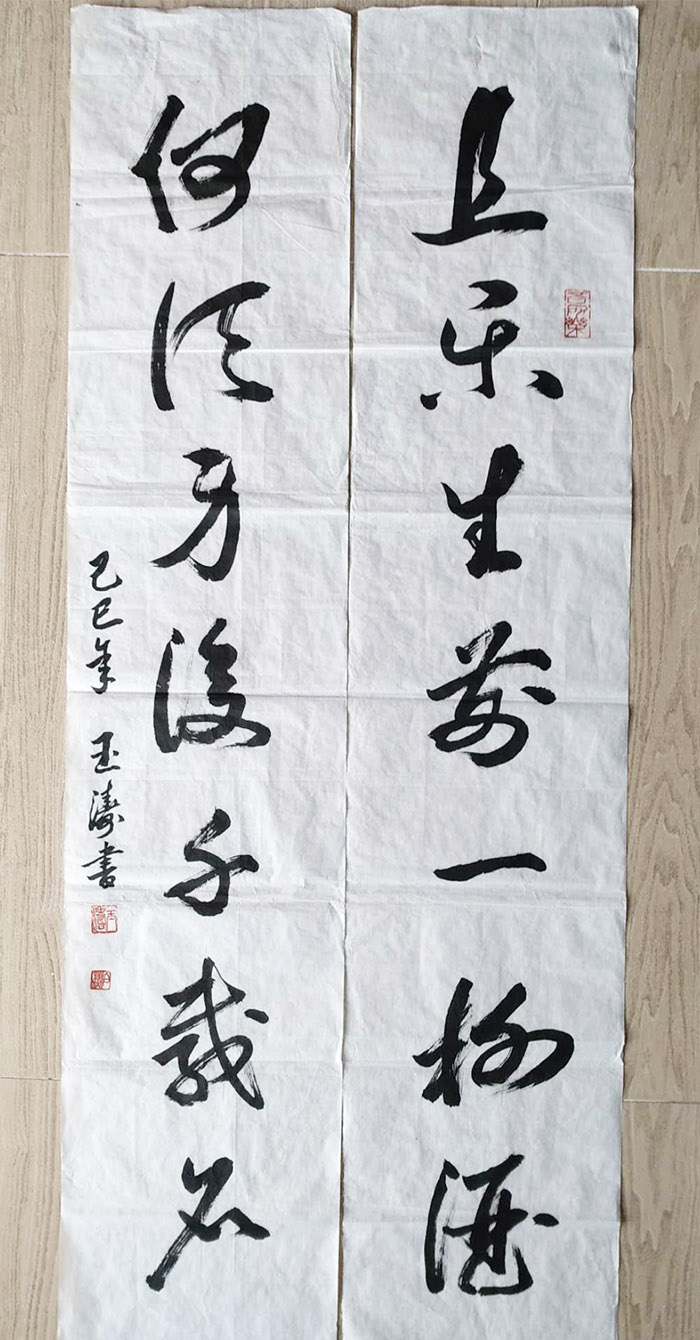 且乐生前一杯酒
何须身後千载名
己巳年 玉濤書